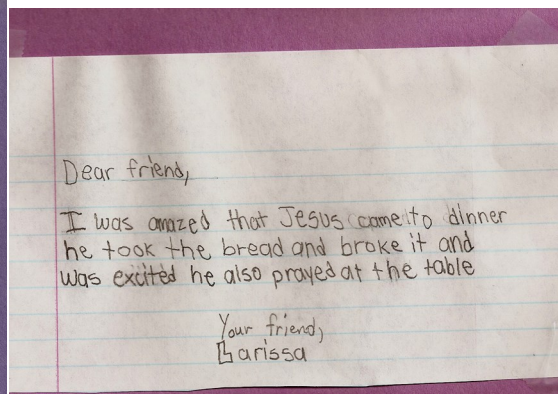 Dear friend,
I was amazed that Jesus came to dinner
he took the bread and broke it and
was excited he also prayed at the table
Your friend,
Larissa